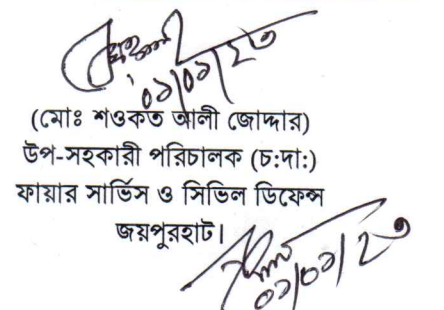 ০১/০১/২৩
(মোঃ শওকত আলী জোদ্দার)
উপ-সহকারী পরিচালক (চ:দা:)
ফায়ার সার্ভিস ও সিভিল ডিফেন্স
জয়পুরহাট।
০১/০১/২৩